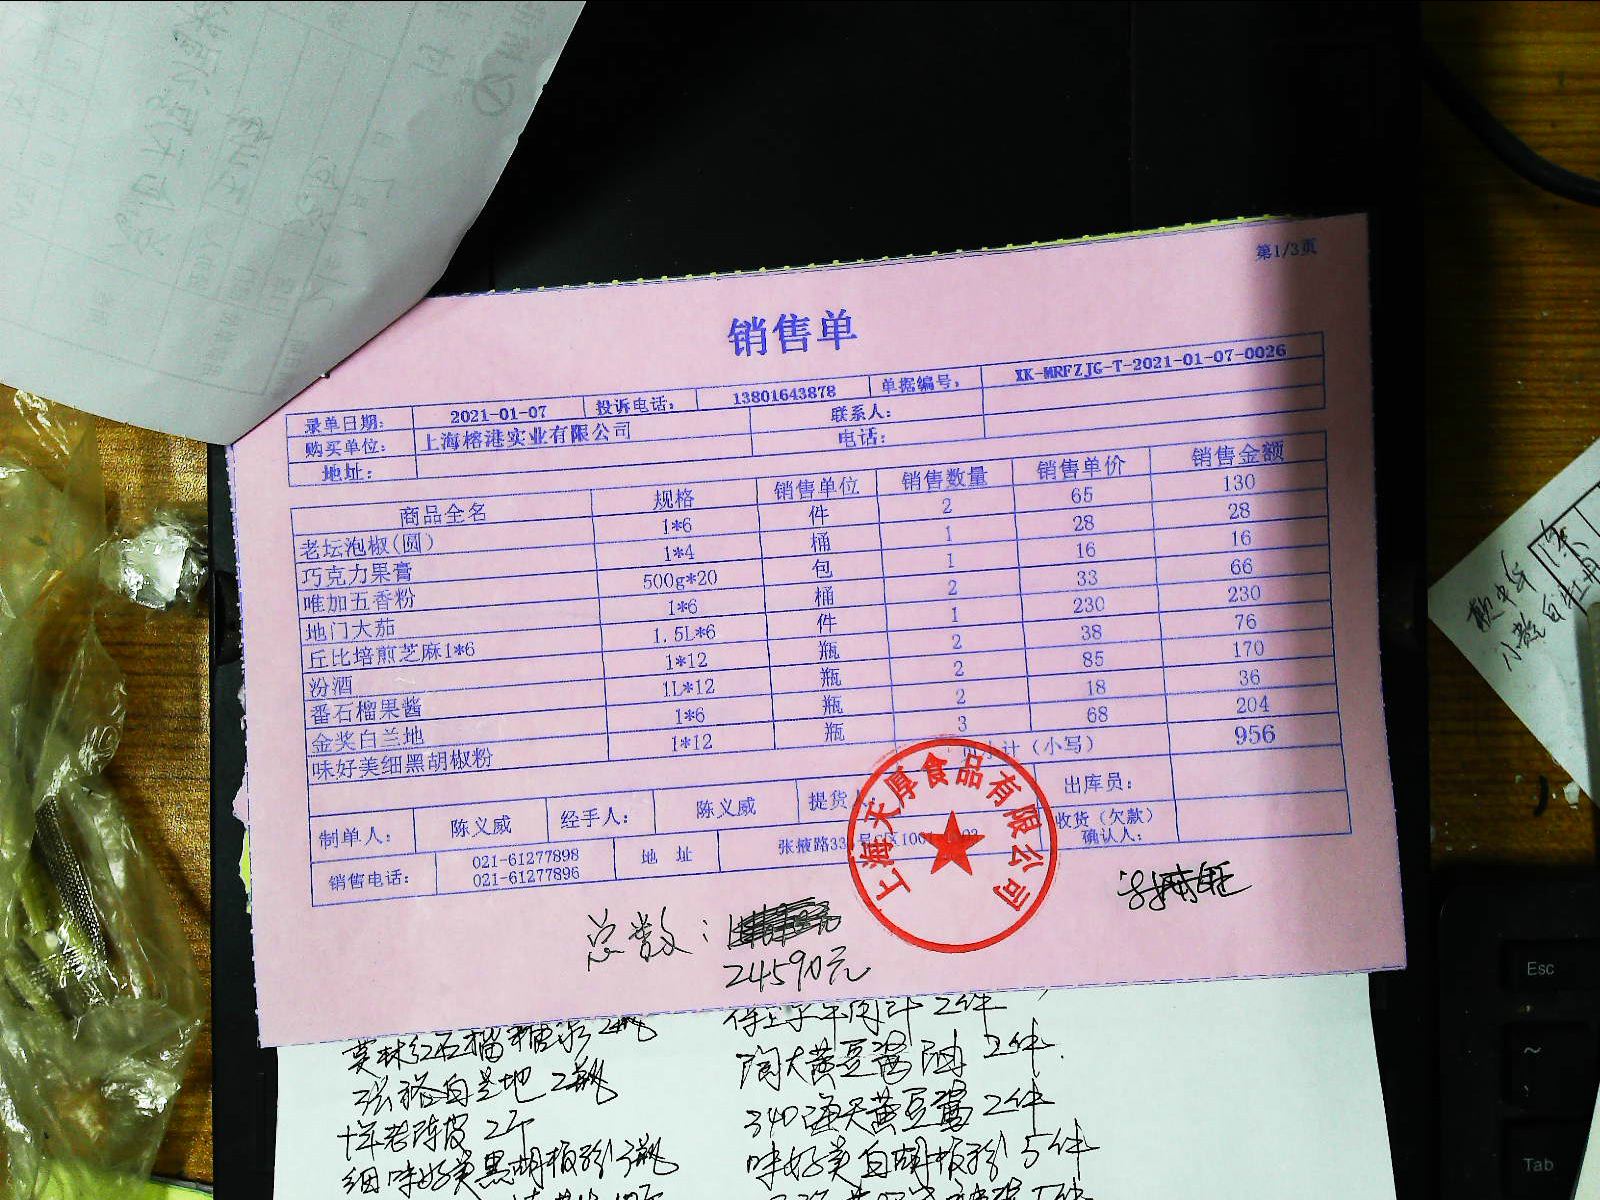 第1/3页
销售单
录单日期: 2021-01-07 投诉电话: 13801643878 单据编号: XK-MRFZJG-T-2021-01-07-0026
购买单位: 上海榕港实业有限公司 联系人:
地址: 电话:
商品全名 规格 销售单位 销售数量 销售单价 销售金额
老坛泡椒(圆) 1*6 件 2 65 130
巧克力果膏 1*4 桶 1 28 28
唯加五香粉 500g*20 包 1 16 16
地门大茄 1*6 桶 2 33 66
丘比培煎芝麻1*6 1.5L*6 件 1 230 230
汾酒 1*12 瓶 2 38 76
番石榴果酱 1L*12 瓶 2 85 170
金奖白兰地 1*6 瓶 2 18 36
味好美细黑胡椒粉 1*12 瓶 3 68 204
计（小写） 956
制单人: 陈义威 经手人: 陈义威 提货 出库员:
销售电话: 021-61277898 021-61277896 地 址 张掖路33 收货（欠款）确认人:
上海天厚食品有限公司
总数：
24590元
莫林红石榴糖浆2瓶
张裕白兰地2瓶
十年老陈皮2个
细味好美黑胡椒粉3瓶
淘大黄豆酱油2件
340海天黄豆酱2件
味好美白胡椒粉5件
Esc
~
Tab